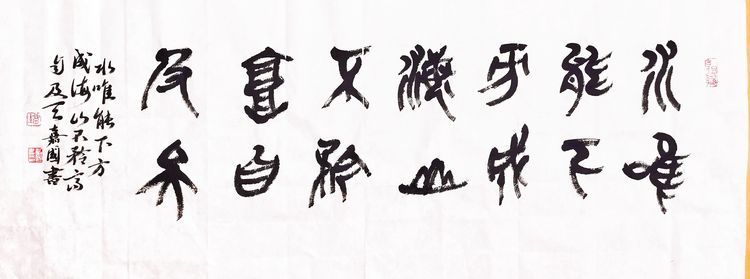 水唯
能下
方成
海山
不矜
高自
及天
水唯能下方
成海山不矜高
自及天嘉國書